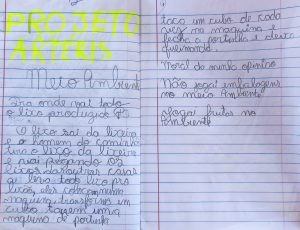 PROJETO
ARTERIS
Meio Ambiente
Pra onde vai todo
o lixo produzido
O lixo sai da lixeira
e o homem do caminhão
tira o lixo da lixeira
e vai pegando os
lixos das outras casas
ai leva todo lixo pro
lixão, eles com uma
maquina transforma em
cubo tacem uma
maquina de portinha
taca um cubo de cada
vez na maquina e
fecha a portinha e deixa
queimando.
Moral da minha opinião
Não jogai embalagens
no meio Ambiente
jogai frutas no
Ambiente